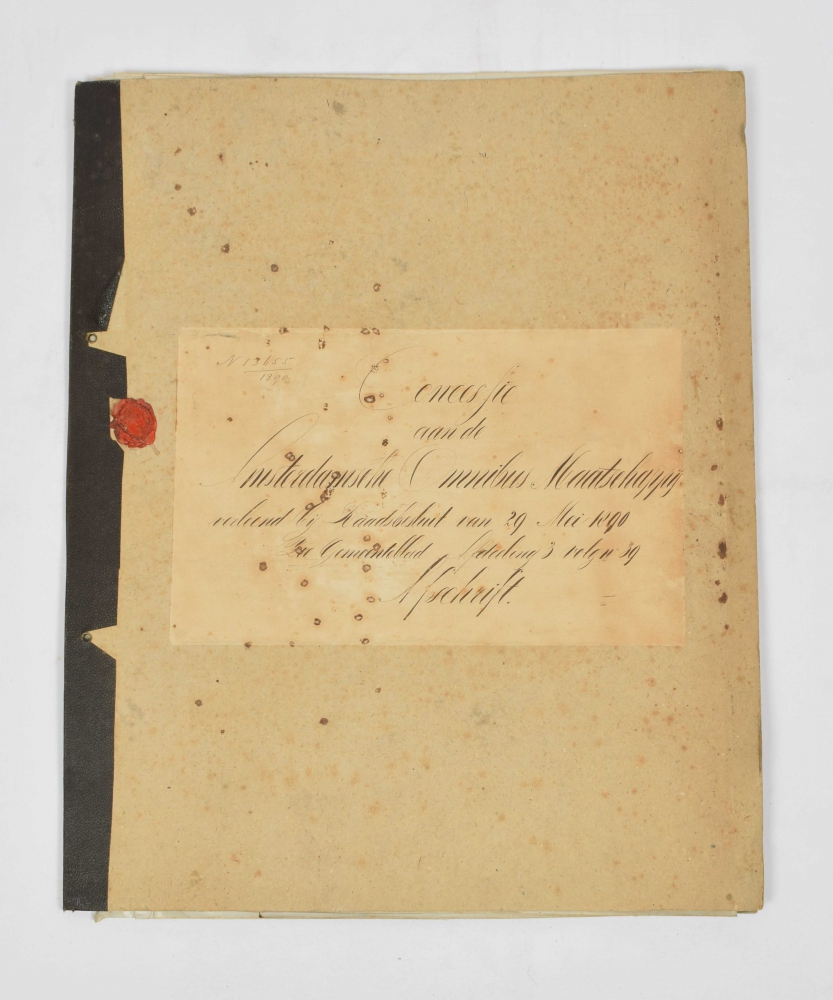 N 13655
1890
Concessie
aan de
Amsterdamsche Omnibus Maatschappij
verleend bij Raadsbesluit van 29 Mei 1890
Zie Gemeenteblad Afdeeling 3 volgn 39
Afschrift.